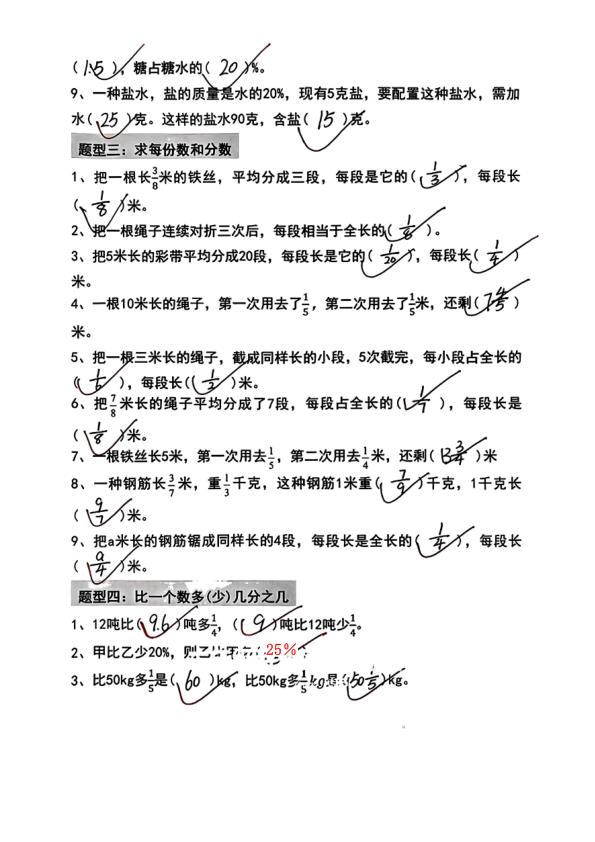 ( 1.5 ), 糖占糖水的( 20 )%。
9、一种盐水，盐的质量是水的20%，现有5克盐，要配置这种盐水，需加
水( 25 )克。这样的盐水90克，含盐( 15 )克。
题型三：求每份数和分数
1、把一根长3/8米的铁丝，平均分成三段，每段是它的( 1/3 )，每段长
( 1/8 )米。
2、把一根绳子连续对折三次后，每段相当于全长的( 1/8 )。
3、把5米长的彩带平均分成20段，每段长是它的( 1/20 )，每段长( 1/4 )
米。
4、一根10米长的绳子，第一次用去了1/5，第二次用去了1/5米，还剩( 7 4/5 )
米。
5、把一根三米长的绳子，截成同样长的小段，5次截完，每小段占全长的
( 1/6 )，每段长( 1/2 )米。
6、把7/8米长的绳子平均分成了7段，每段占全长的( 1/7 )，每段长是
( 1/8 )米。
7、一根铁丝长5米，第一次用去1/5，第二次用去1/4米，还剩( 3 3/4 )米
8、一种钢筋长3/7米，重1/3千克，这种钢筋1米重( 7/9 )千克，1千克长
( 9/7 )米。
9、把a米长的钢筋锯成同样长的4段，每段长是全长的( 1/4 )，每段长
( a/4 )米。
题型四：比一个数多(少)几分之几
1、12吨比( 9.6 )吨多1/4，( 9 )吨比12吨少1/4。
2、甲比乙少20%，则乙比甲 25%
3、比50kg多1/5是( 60 )kg，比50kg多1/5kg是( 50 1/5 )kg。